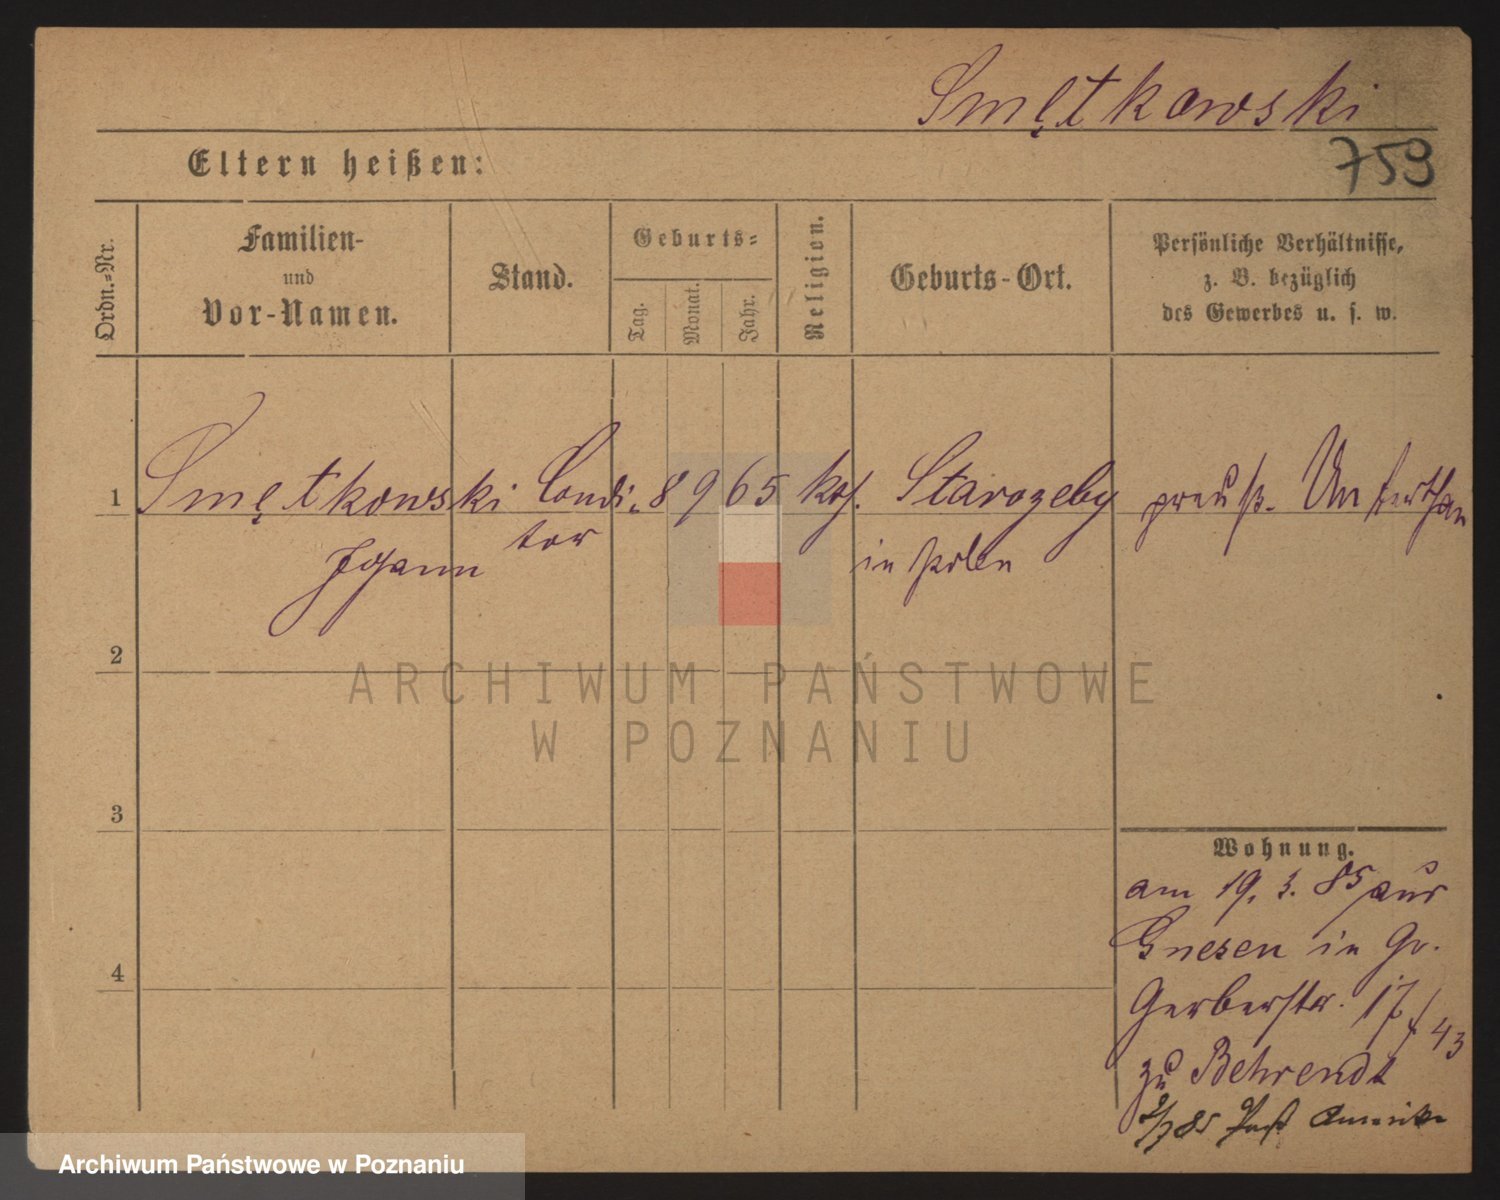 Smętkowski
759
Eltern heißen:
Ordn.-Nr.
Familien-
und
Vor-Namen.
Stand.
Geburts-
Tag.
Monat.
Jahr.
Religion.
Geburts-Ort.
Persönliche Verhältnisse,
z. B. bezüglich
des Gewerbes u. s. w.
1 Smętkowski Condi- 8 9 65 kath. Starozeby preuß. Unterthan
Johann tor in Polen
2
3
4
Wohnung.
am 19. 3. 85 aus
Gnesen in Gr.
Gerberstr. 17/43
zu Behrendt
2/7 85 Paß Amerika
ARCHIWUM PAŃSTWOWE
W POZNANIU
Archiwum Państwowe w Poznaniu